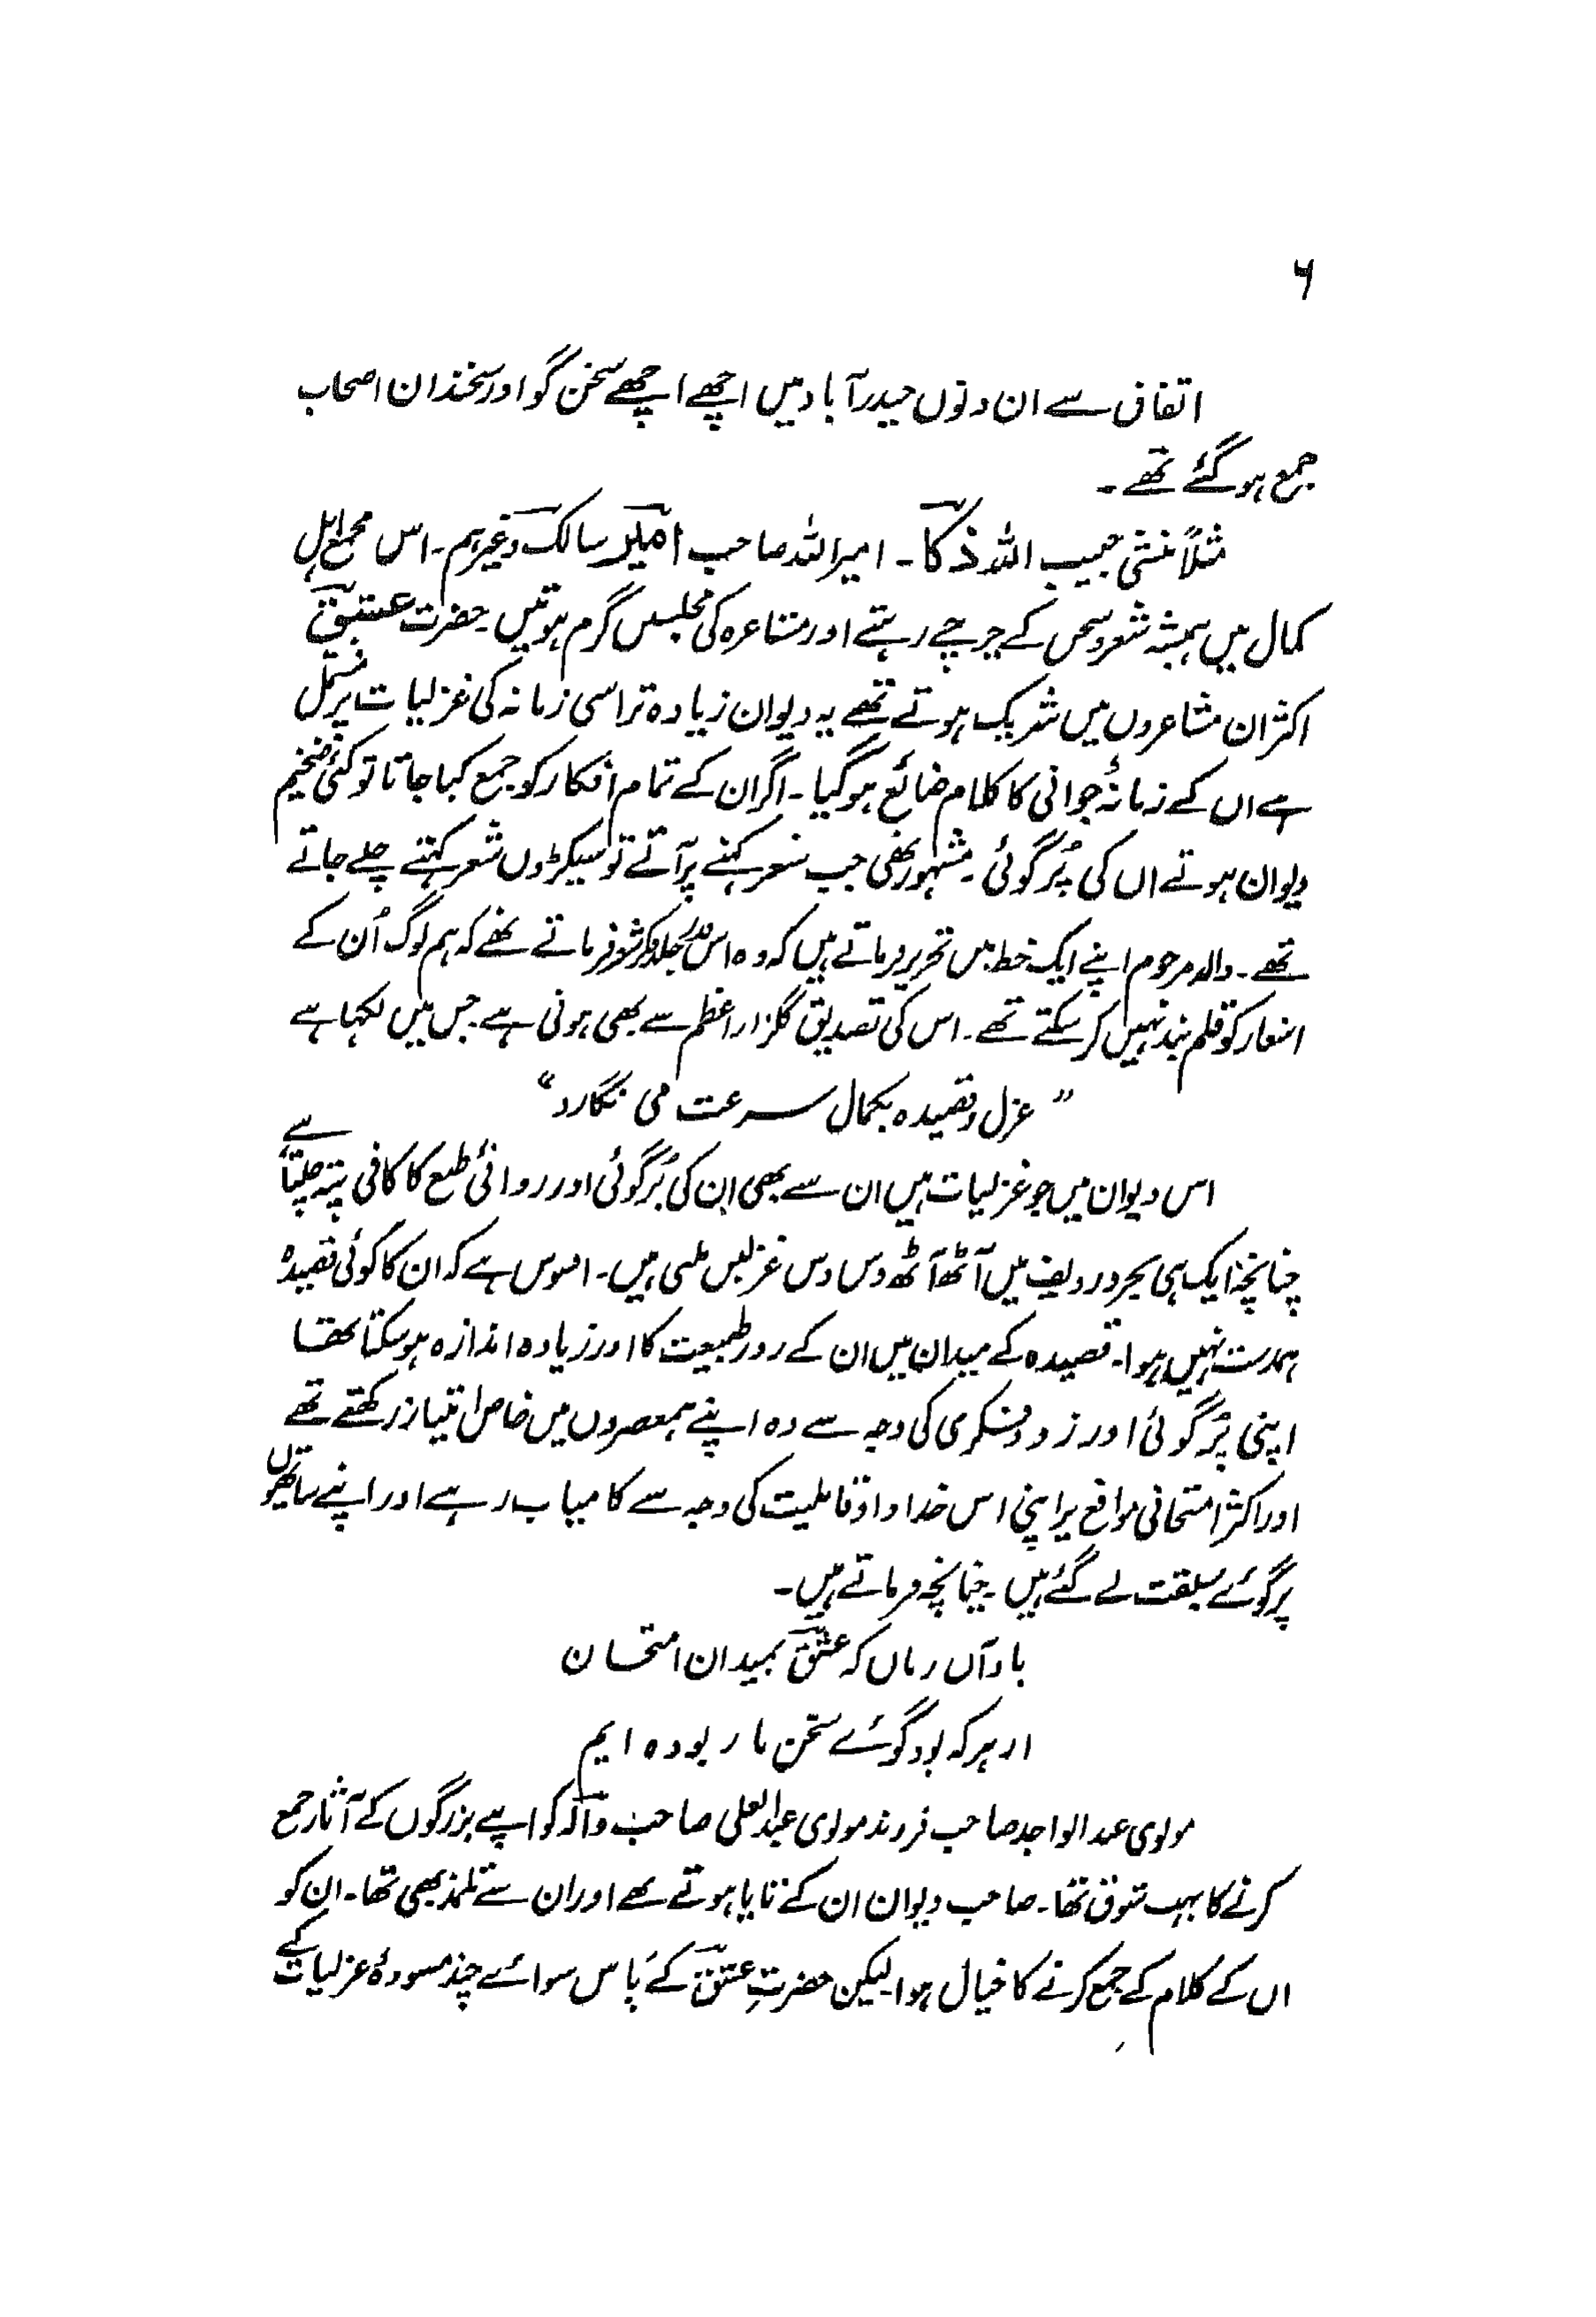 ۶
اتفاق سے ان دنوں حیدرآباد میں اچھے اچھے سخن گو اور سخندان اصحاب
جمع ہو گئے تھے ۔
مثلاً منشی حبیب اللہ ذکا ۔ امیر اللہ صاحب امیر سالک وغیرہم ۔ اس مجمع اہل
کمال میں ہمیشہ شعر و سخن کے چرچے رہتے اور مشاعرہ کی مجلسیں گرم ہوتیں ۔ حضرت عتیق
اکثر ان مشاعروں میں شریک ہوتے تھے یہ دیوان زیادہ تر اسی زمانہ کی غزلیات پر مشتمل
ہے ان کے زمانۂ جوانی کا کلام ضائع ہو گیا ۔ اگر ان کے تمام افکار کو جمع کیا جاتا تو کئی ضخیم
دیوان ہوتے ان کی پُر گوئی ۔ مشہور تھی جب شعر کہنے پر آتے تو سیکڑوں شعر کہتے چلے جاتے
تھے ۔ والد مرحوم اپنے ایک خط میں تحریر فرماتے ہیں کہ وہ اس قدر جلد فکر شعر فرماتے تھے کہ ہم لوگ اُن کے
اشعار کو قلم بند نہیں کر سکتے تھے ۔ اس کی تصدیق گلزار اعظم سے بھی ہوتی ہے ۔ جس میں لکھا ہے
" غزل و قصیدہ بکمال سرعت می نگارد "
اس دیوان میں جو غزلیات ہیں ان سے بھی ان کی پُر گوئی اور روانئ طبع کا کافی پتہ چلتا ہے
چنانچہ ایک ہی بحر در ردیف میں آٹھ آٹھ دس دس غزلیں ملتی ہیں ۔ افسوس ہے کہ ان کا کوئی قصیدہ
ہمدست نہیں ہوا ۔ قصیدہ کے میدان میں ان کے زور طبیعت کا اور زیادہ اندازہ ہو سکتا تھا
اپنی پُر گوئی اور زود فکری کی وجہ سے وہ اپنے ہمعصروں میں خاص امتیاز رکھتے تھے
اور اکثر امتحانی مواقع پر اپنی اس خداداد قابلیت کی وجہ سے کامیاب رہے اور اپنے ساتھیوں
پر گوئے سبقت لے گئے ہیں ۔ چنانچہ فرماتے ہیں ۔
یاد آں زماں کہ عتیق بمیدان امتحان
از ہر کہ بود گوئے سخن ما ربودہ ایم
مولوی عبدالواجد صاحب فرزند مولوی عبدالعلی صاحب والہ کو اپنے بزرگوں کے آثار جمع
کرنے کا بہت شوق تھا ۔ صاحب دیوان ان کے نانا ہوتے تھے اور ان سے تلمذ بھی تھا ۔ ان کو
ان کے کلام کے جمع کرنے کا خیال ہوا لیکن حضرتِ عتیق کے پاس سوائے چند مسودۂ غزلیات کے